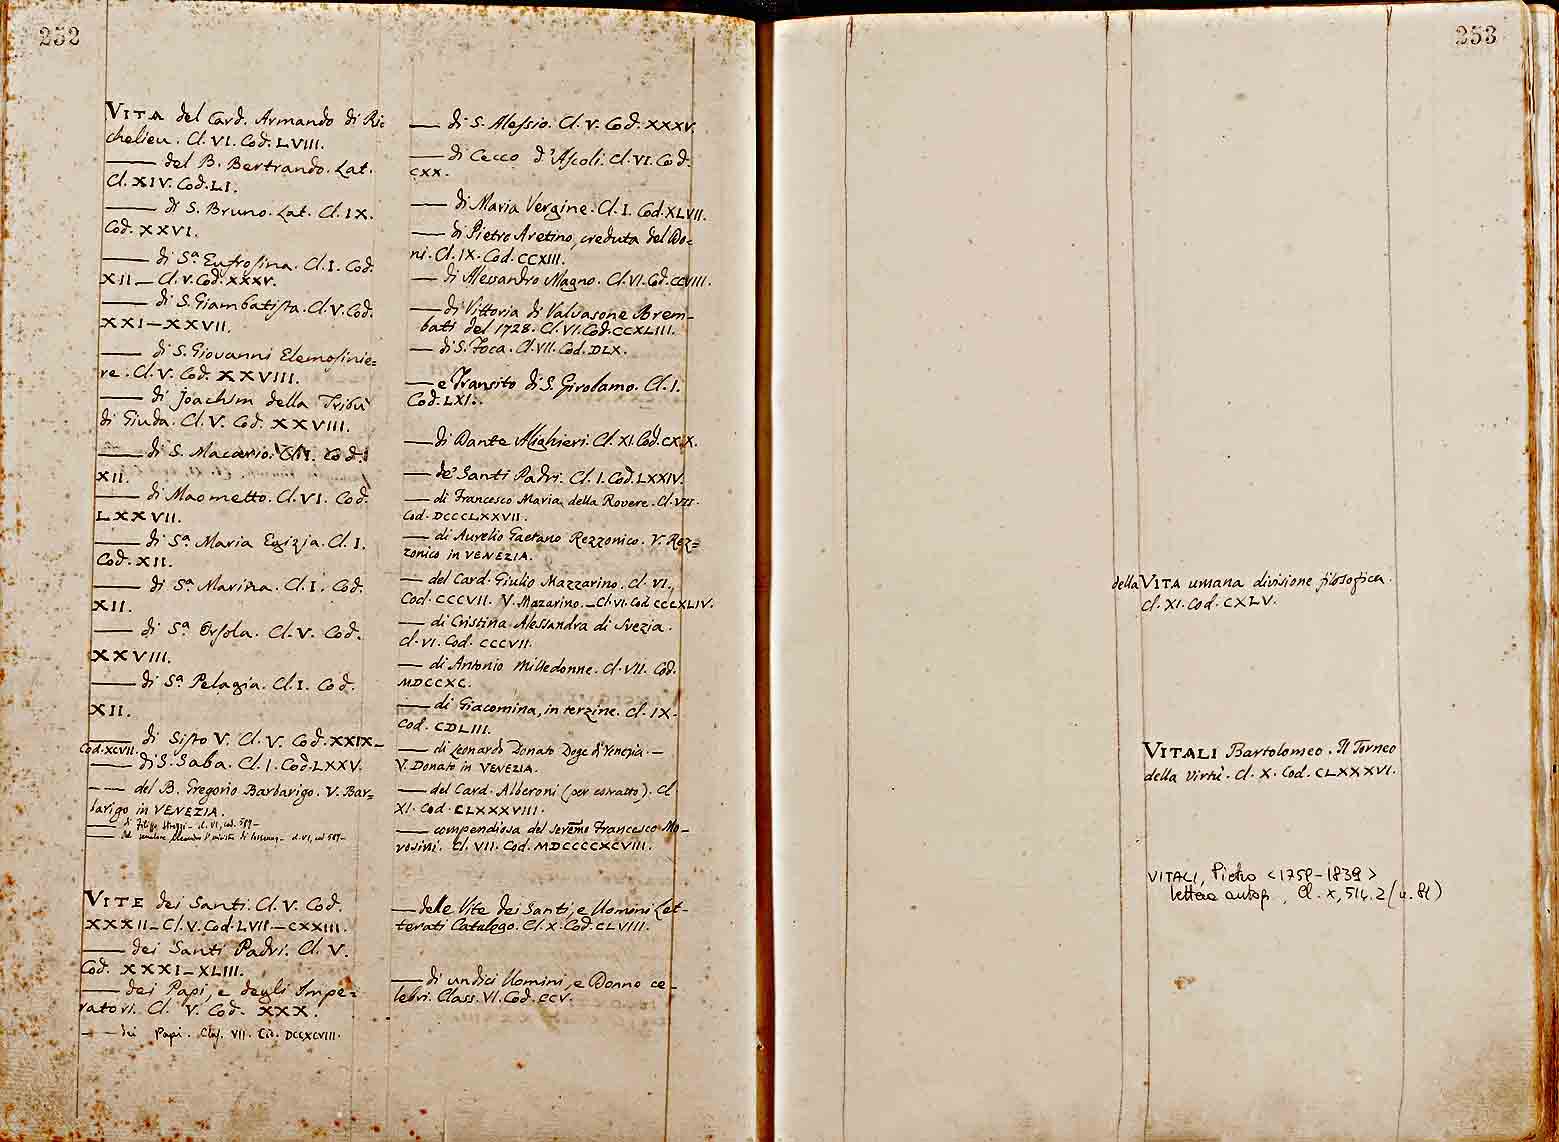 252
VITA del Card. Armando di Ri-
chelieu. Cl. VI. Cod. LVIII.
—— del B. Bertrando. Lat.
Cl. XIV. Cod. LI.
—— di S. Bruno. Lat. Cl. IX.
Cod. XXVI.
—— di Sª Eufrosina. Cl. I. Cod.
XII — Cl. V. Cod. XXXV.
—— di S. Giambatista. Cl. V. Cod.
XXI — XXVII.
—— di S. Giovanni Elemosinie=
re. Cl. V. Cod. XXVIII.
—— di Joachim della Tribù
di Giuda. Cl. V. Cod. XXVIII.
—— di S. Macario. Cl. I. Cod.
XII.
—— di Maometto. Cl. VI. Cod.
LXXVII.
—— di Sª Maria Egizia. Cl. I.
Cod. XII.
—— di Sª Marina. Cl. I. Cod.
XII.
—— di Sª Orsola. Cl. V. Cod.
XXVIII.
—— di Sª Pelagia. Cl. I. Cod.
XII.
—— di Sisto V. Cl. V. Cod. XXIX —
Cod. XCVII.
—— di S. Saba. Cl. I. Cod. LXXV.
—— del B. Gregorio Barbarigo. V. Bar=
barigo in VENEZIA.
—— di Filippo Strozzi — cl. VI, cod. 589 —
—— cl. VI, cod. 589 —
VITE dei Santi. Cl. V. Cod.
XXXII — Cl. V. Cod. LVII — CXXIII.
—— dei Santi Padri. Cl. V.
Cod. XXXI — XLIII.
—— dei Papi, e degli Impe=
ratori. Cl. V. Cod. XXX.
—— dei Papi. Class. VII. Cod. DCCXCVIII.
—— di S. Alessio. Cl. V. Cod. XXXV.
—— di Cecco d'Ascoli. Cl. VI. Cod.
CXX.
—— di Maria Vergine. Cl. I. Cod. XLVII.
—— di Pietro Aretino, creduta del Do=
ni. Cl. IX. Cod. CCXIII.
—— di Alessandro Magno. Cl. VI. Cod. CCVIII.
—— di Vittoria di Valvasone Brem=
bati del 1728. Cl. VI. Cod. CCXLIII.
—— di S. Foca. Cl. VII. Cod. DLX.
—— e Transito di S. Girolamo. Cl. I.
Cod. LXI.
—— di Dante Alighieri. Cl. XI. Cod. CXX.
—— de' Santi Padri. Cl. I. Cod. LXXIV.
—— di Francesco Maria della Rovere. Cl. VII.
Cod. DCCCLXXVII.
—— di Aurelio Gaetano Rezzonico. V. Rez=
zonico in VENEZIA.
—— del Card. Giulio Mazzarino. Cl. VI.,
Cod. CCCVII. V. Mazarino. — Cl. VI. Cod. CCCXLIV.
—— di Cristina Alessandra di Svezia.
Cl. VI. Cod. CCCVII.
—— di Antonio Milledonne. Cl. VII. Cod.
MDCCXC.
—— di Giacomina, in terzine. Cl. IX.
Cod. CDLIII.
—— di Leonardo Donato Doge di Venezia. —
V. Donato in VENEZIA.
—— del Card. Alberoni (per estratto). Cl
XI. Cod. CLXXXVIII.
—— compendiosa del Seremo Francesco Mo-
rosini. Cl. VII. Cod. MDCCCCXCVIII.
—— delle Vite dei Santi, e Uomini Let-
terati Catalogo. Cl. X. Cod. CLVIII.
—— di undici Uomini, e Donne ce-
lebri. Class. VI. Cod. CCV.
253
della VITA umana divisione filosofica.
Cl. XI. Cod. CXLV.
VITALI Bartolomeo. Il Torneo
della virtù. Cl. X. Cod. CLXXXVI.
VITALI, Pietro <1759-1839>
lettere autogr., Cl. X, 514.2 (n. 81)